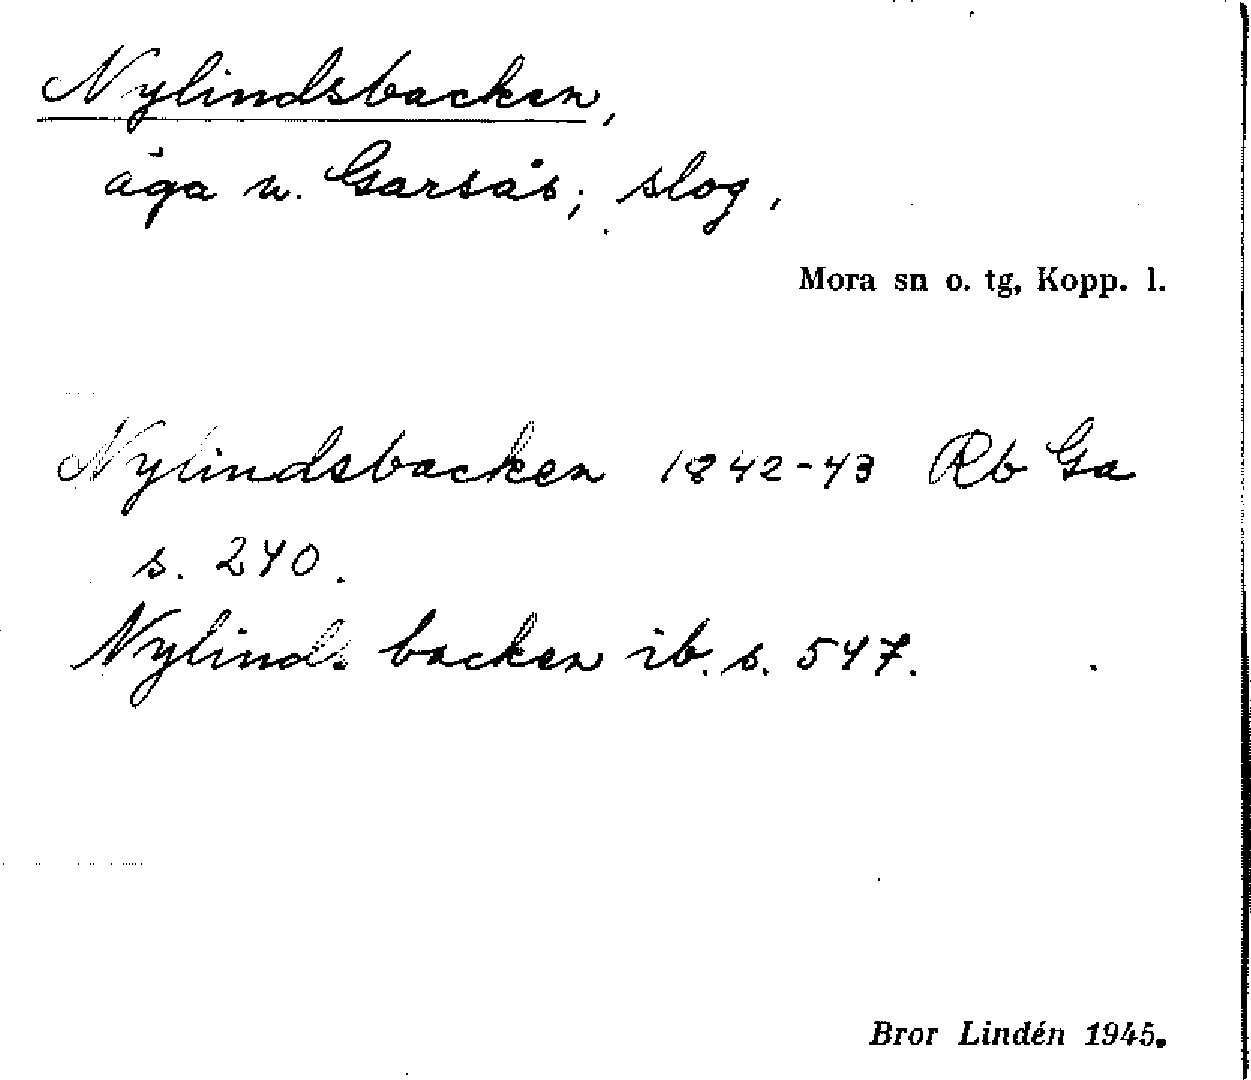 Nylindsbacken,
äga u. Garsås; slog.
Mora sn o. tg, Kopp. l.
Nylindsbacken 1842-43 Rb Ga
s. 240.
Nylinds backen ib. s. 547.
Bror Lindén 1945.